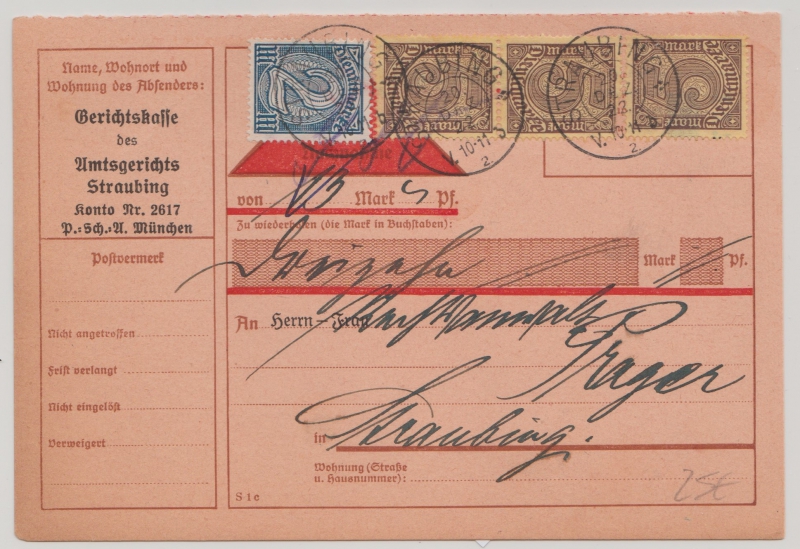 Name, Wohnort und
Wohnung des Absenders:
Gerichtskasse
des
Amtsgerichts
Straubing
Konto Nr. 2617
P.=Sch.=A. München
Postvermerk
Nicht angetroffen
Frist verlangt
Nicht eingelöst
Verweigert
2
Mark
Mark
Mark
STRAUBING
V. 10-11
2.
STRAUBING
V. 10-11
2.
Nachnahme
von 13 Mark Pf.
Zu wiederholen (die Mark in Buchstaben):
Dreizehn Mark Pf.
An Herrn – Frau
Rechtsanwalt
Prager
in Straubing.
Wohnung (Straße
u. Hausnummer):
S 1 c